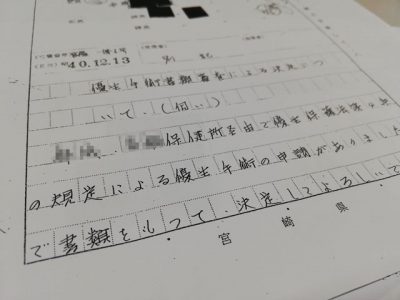 40.12.13
別紙
優生手術書類審査による決定につ
いて.(伺い)
保健所経由で優生保護法第
の規定による優生手術の申請がありました
で書類をもつて、決定してよろしいで
宮崎県